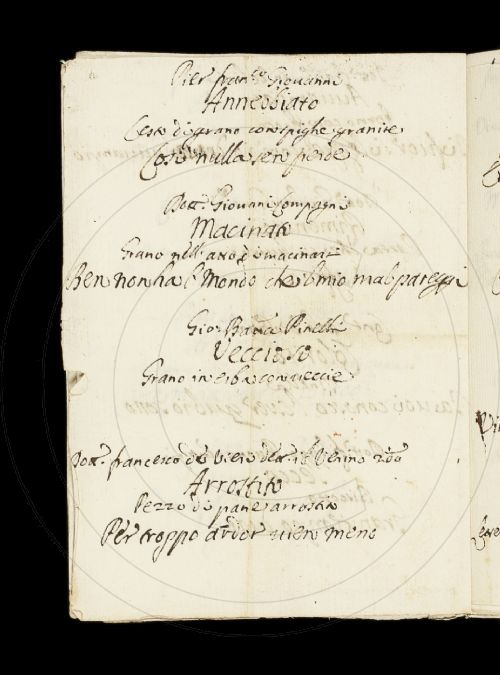 Pier Fran.co Giovanni
Annebbiato
Ceste di grano con spighe granite
Così nulla sen perde
Dott.e Giovani Compagni
Macinato
Grano nell' atto di macinarsi
Ben non ha 'l Mondo che 'l mio mal pareggi
Gio: Batta Pinelli
Veccioso
Grano in erba con veccie
Dott.e Francesco de Vieri detto il Verino 2do
Arrostito
Pezzo di pane arrostito
Per troppo ardor vien meno